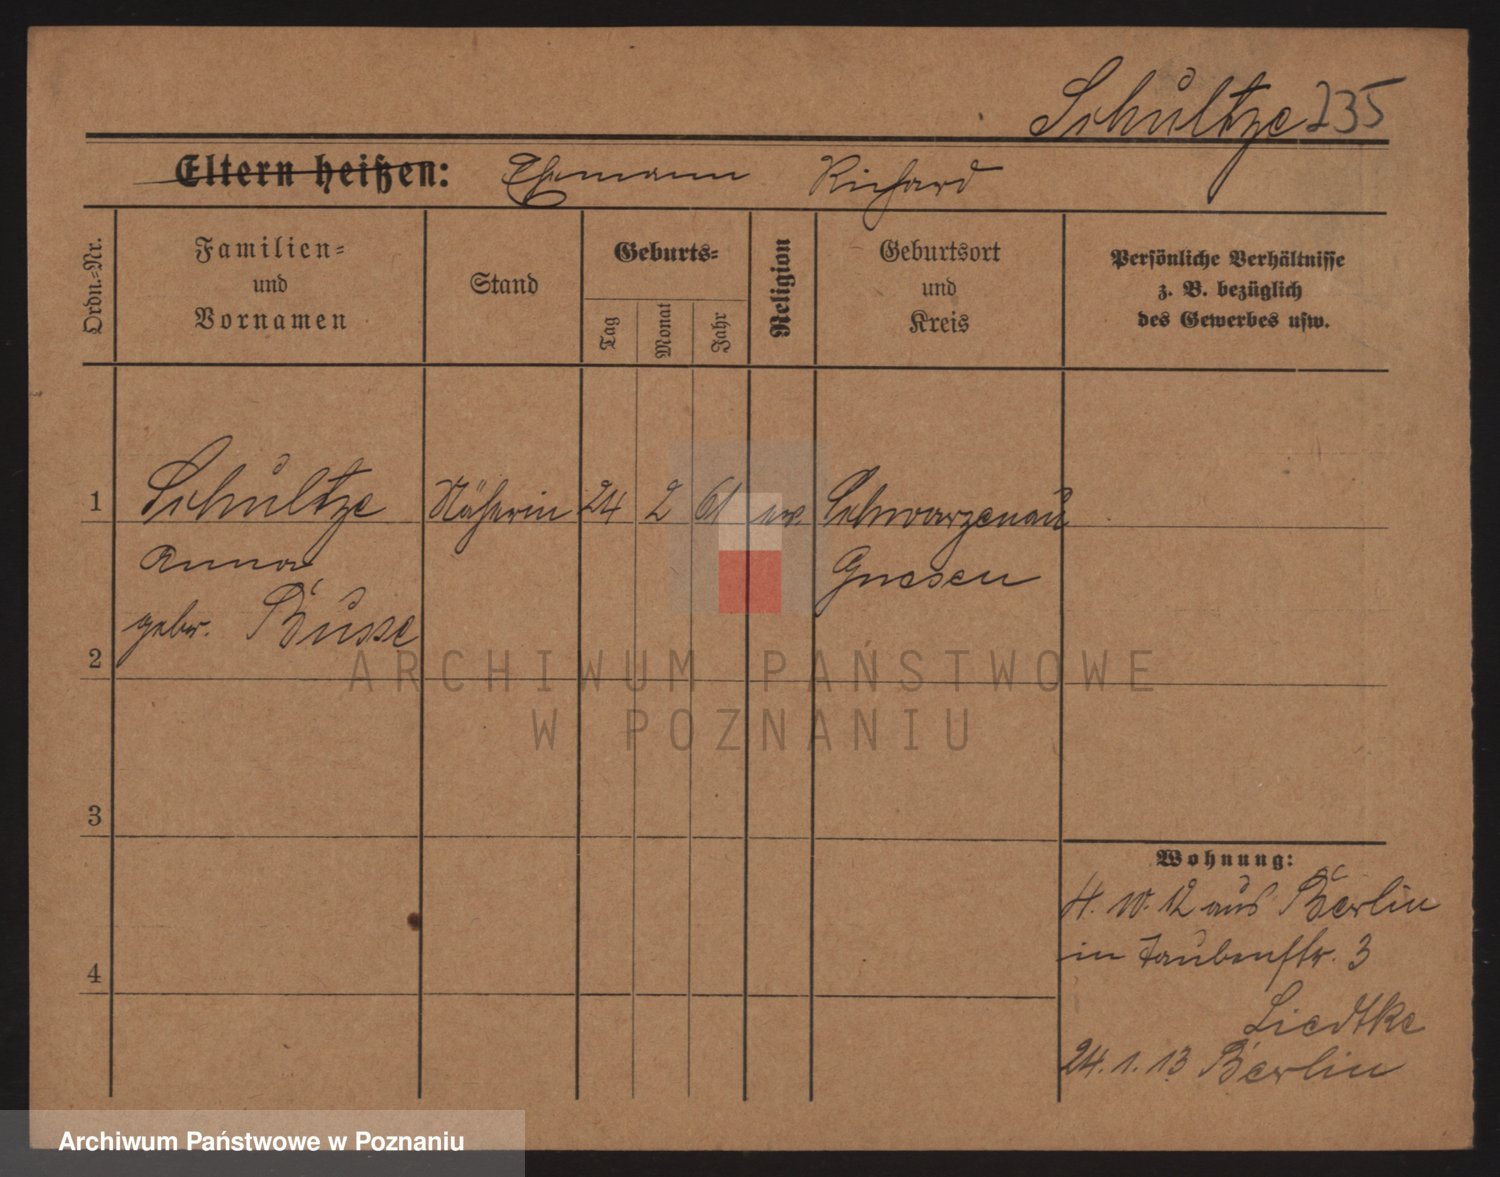 Schultze 235
Eltern heißen: Ehemann Richard
Ordn.-Nr.
Familien- und Vornamen
Stand
Geburts-
Tag
Monat
Jahr
Religion
Geburtsort und Kreis
Persönliche Verhältnisse z. B. bezüglich des Gewerbes usw.
1 Schultze Näherin 24 2 61 ev. Schwarzenau
Anna Gnesen
gebor. Busse
2
3
4
Wohnung:
4. 10. 12 aus Berlin
in Taubenstr. 3
Liedtke
24. 1. 13 Berlin
ARCHIWUM PAŃSTWOWE
W POZNANIU
Archiwum Państwowe w Poznaniu